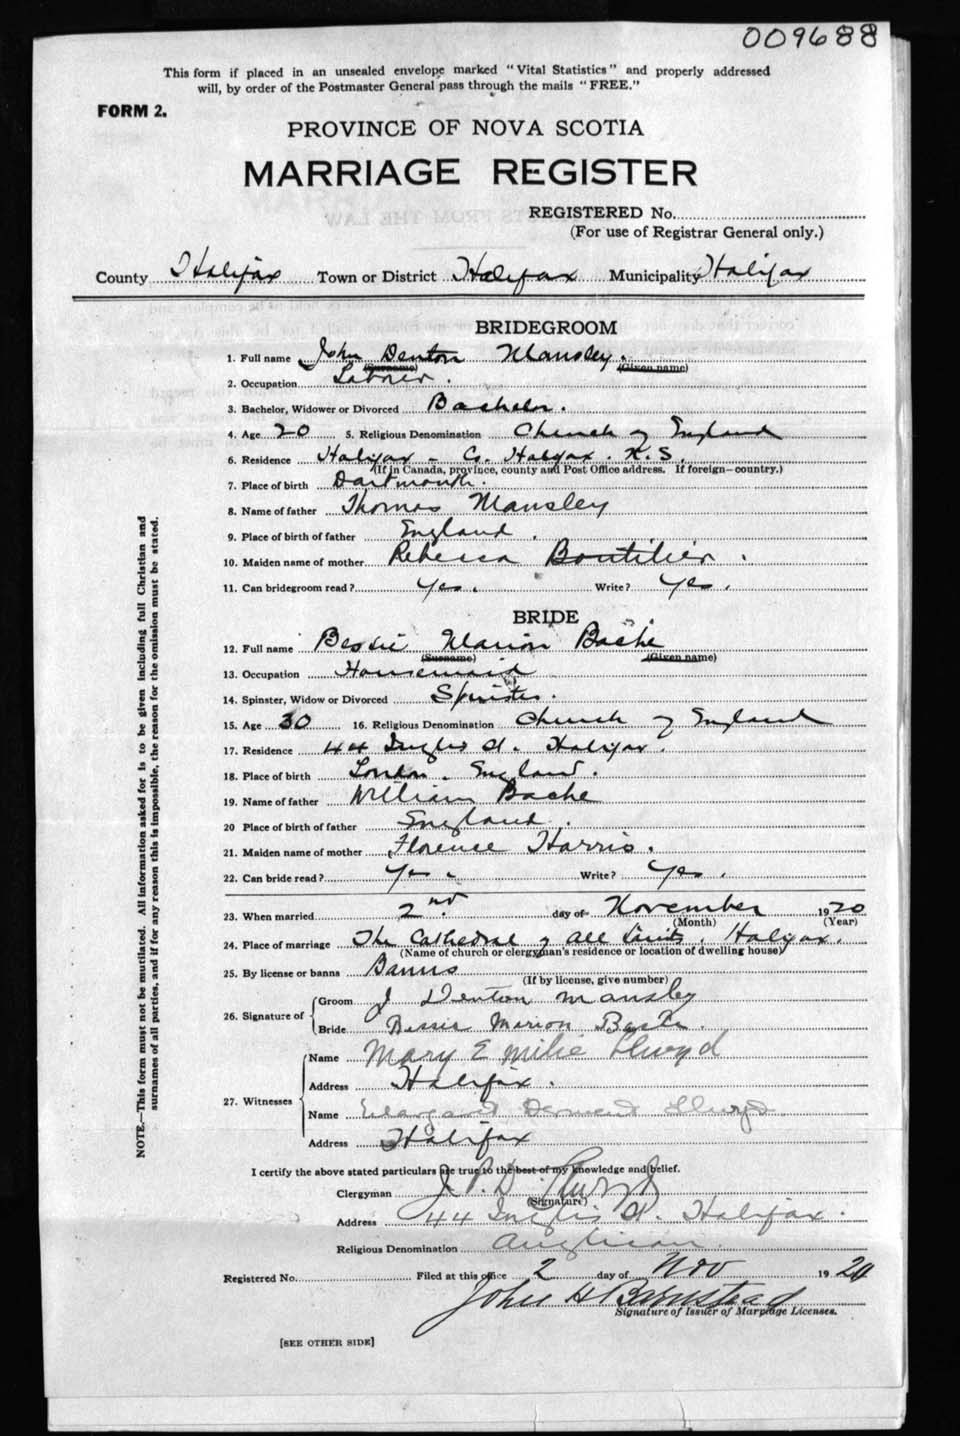 009688
This form if placed in an unsealed envelope marked "Vital Statistics" and properly addressed
will, by order of the Postmaster General pass through the mails "FREE."
FORM 2.
PROVINCE OF NOVA SCOTIA
MARRIAGE REGISTER
REGISTERED No.
(For use of Registrar General only.)
County Halifax Town or District Halifax Municipality Halifax
BRIDEGROOM
1. Full name John Denton Mansley.
(Surname) (Given name)
2. Occupation Laborer.
3. Bachelor, Widower or Divorced Bachelor.
4. Age 20 5. Religious Denomination Church of England
6. Residence Halifax - Co. Halifax. N.S.
(If in Canada, province, county and Post Office address. If foreign—country.)
7. Place of birth Dartmouth.
8. Name of father Thomas Mansley
9. Place of birth of father England.
10. Maiden name of mother Rebecca Boutilier.
11. Can bridegroom read? Yes. Write? Yes.
BRIDE
12. Full name Bessie Marion Bache
(Surname) (Given name)
13. Occupation Housemaid
14. Spinster, Widow or Divorced Spinster.
15. Age 30 16. Religious Denomination Church of England
17. Residence 44 Inglis St. Halifax.
18. Place of birth London. England.
19. Name of father William Bache
20 Place of birth of father England.
21. Maiden name of mother Florence Harris.
22. Can bride read? Yes. Write? Yes.
23. When married 2nd day of November 1920
(Month) (Year)
24. Place of marriage The Cathedral of All Saints. Halifax.
(Name of church or clergyman's residence or location of dwelling house)
25. By license or banns Banns
(If by license, give number)
26. Signature of Groom J Denton Mansley
Bride Bessie Marion Bache.
27. Witnesses Name Mary Emilie Llwyd
Address Halifax.
Name Margaret Llwyd
Address Halifax
I certify the above stated particulars are true to the best of my knowledge and belief.
Clergyman J. P. D. Llwyd
(Signature)
Address 44 Inglis St. Halifax.
Religious Denomination Anglican.
Registered No. Filed at this office 2 day of Nov 1920
John H Barnstead
Signature of Issuer of Marriage Licenses.
[SEE OTHER SIDE]
NOTE.—This form must not be mutilated. All information asked for is to be given including full Christian and
surnames of all parties, and if for any reason this is impossible, the reason for the omission must be stated.